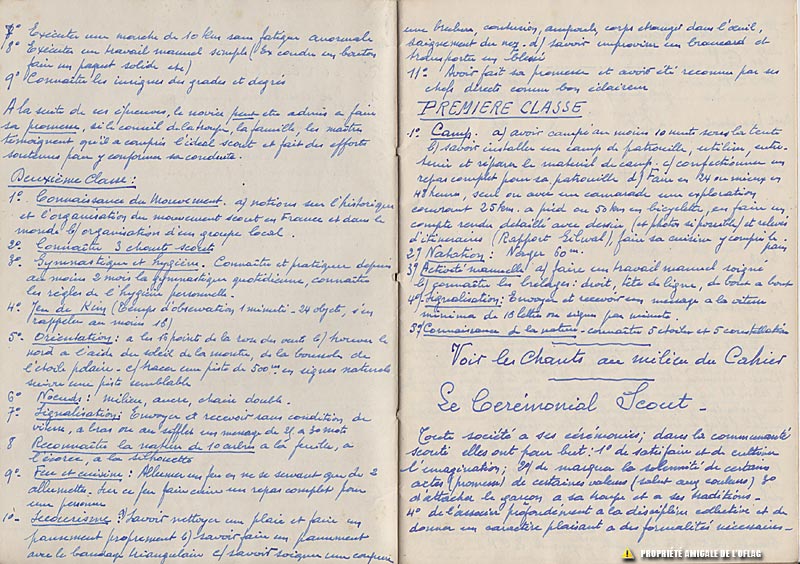 7° Exécuter une marche de 10 km sans fatigue anormale
8° Exécuter un travail manuel simple (Ex coudre un bouton
faire un paquet solide etc)
9° Connaître les insignes des grades et degrés
A la suite de ces épreuves, le novice peut etre admis a faire
sa promesse, si le conseil de la troupe, la famille, les maitres
temoignent qu'il a compris l'idéal scout et fait des efforts
soutenus pour y conformer sa conduite.
Deuxième Classe:
1° Connaissance du Mouvement. a) notions sur l'historique
et l'organisation du mouvement scout en France et dans le
monde b) organisation d'un groupe local.
2° Connaître 3 chants scouts
3° Gymnastique et hygiène. Connaître et pratiquer depuis
au moins 2 mois la gymnastique quotidienne, connaître
les règles de l'hygiène personnelle.
4° Jeu de Kim (Temps d'observation 1 minute - 24 objets, s'en
rappeler au moins 16)
5° Orientation: a les 16 point de la rose des vents b) trouver le
nord a l'aide du soleil de la montre, de la boussole de
l'etoile polaire - c) tracer une piste de 500m en signes naturels
suivre une piste semblable
6° Noeuds: milieu, ancre, chaise double.
7° Signalisation: Envoyer et recevoir sans condition de
vitesse, a bras ou au sifflet un message de 25 a 30 mots
8 Reconnaître la nature de 10 arbres à la feuille, a
l'écorce, a la silhouette
9° Feu et cuisine: Allumer un feu en ne se servant que de 2
allumettes. Sur ce feu faire cuire un repas complet pour
une personne
10° Secourisme: Savoir nettoyer une plaie et faire un
pansement proprement b) savoir faire un pansement
avec le bandage triangulaire c) savoir soigner une coupure
une brulure, contusions, ampoule, corps etranger dans l'oeil,
saignement du nez. d) savoir improviser un brancard et
transporter un blessé
11° Avoir fait sa promesse et avoir été reconnu par ses
chefs directs comme bon éclaireur
PREMIERE CLASSE
1° Camp. a) avoir campé au moins 10 nuits sous la tente
b) savoir installer un camp de patrouille, utiliser, entre-
tenir et réparer le materiel de camp. c) confectionner un
repas complet pour sa patrouille d) Faire en 24 ou mieux en
48 heures, seul ou avec un camarade une exploration
couvrant 25 km. a pied ou 50 km en bicyclette, en faire un
compte rendu detaillé avec dessins, (et photos si possible) et relevés
d'itineraires (Rapport Gilwel), faire sa cuisine y compris le
pain
2°/ Natation: Nager 60m.
3°/ Activité manuelle a) faire un travail manuel soigné
b) connaître les brelages: droit, tête de ligne, de bout a bout
4°/ Signalisation: Envoyer et recevoir un message a la vitesse
minima de 18 lettres ou signes par minute.
5°/ Connaissance de la nature - connaître 5 etoiles et 5 constellations
Voir les Chants au milieu du Cahier
Le Cerémonial Scout -
Toute société a ses cérémonies; dans la communauté
scoute elles ont pour but: 1° de satisfaire et de cultiver
l'imagination; 2°/ de marquer la solemnité de certains
actes (promesse) de certaines valeurs (salut aux couleurs) 3°
d'attacher le garçon a sa troupe et a ses traditions -
4° de l'associer profondément a la discipline collective et de
donner un caractère plaisant a des formalités nécessaires -
PROPRIÉTÉ AMICALE DE L'OFLAG